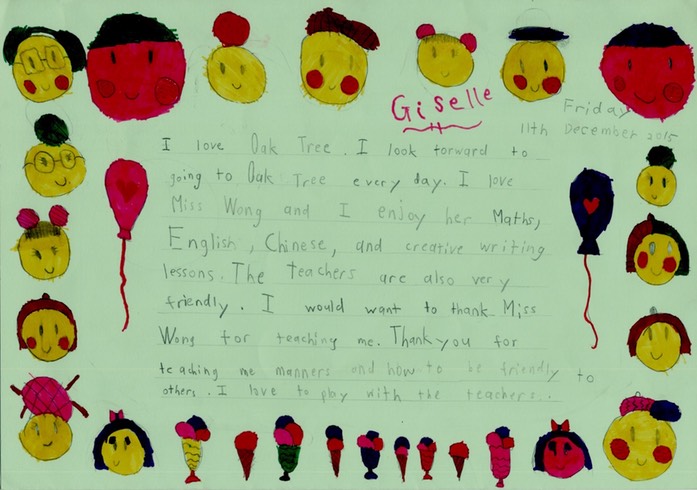 Giselle
Friday
11th December 2015
I love Oak Tree. I look forward to
going to Oak Tree every day. I love
Miss Wong and I enjoy her Maths,
English, Chinese, and creative writing
lessons. The teachers are also very
friendly. I would want to thank Miss
Wong for teaching me. Thank you for
teaching me manners and how to be friendly to
others. I love to play with the teachers..